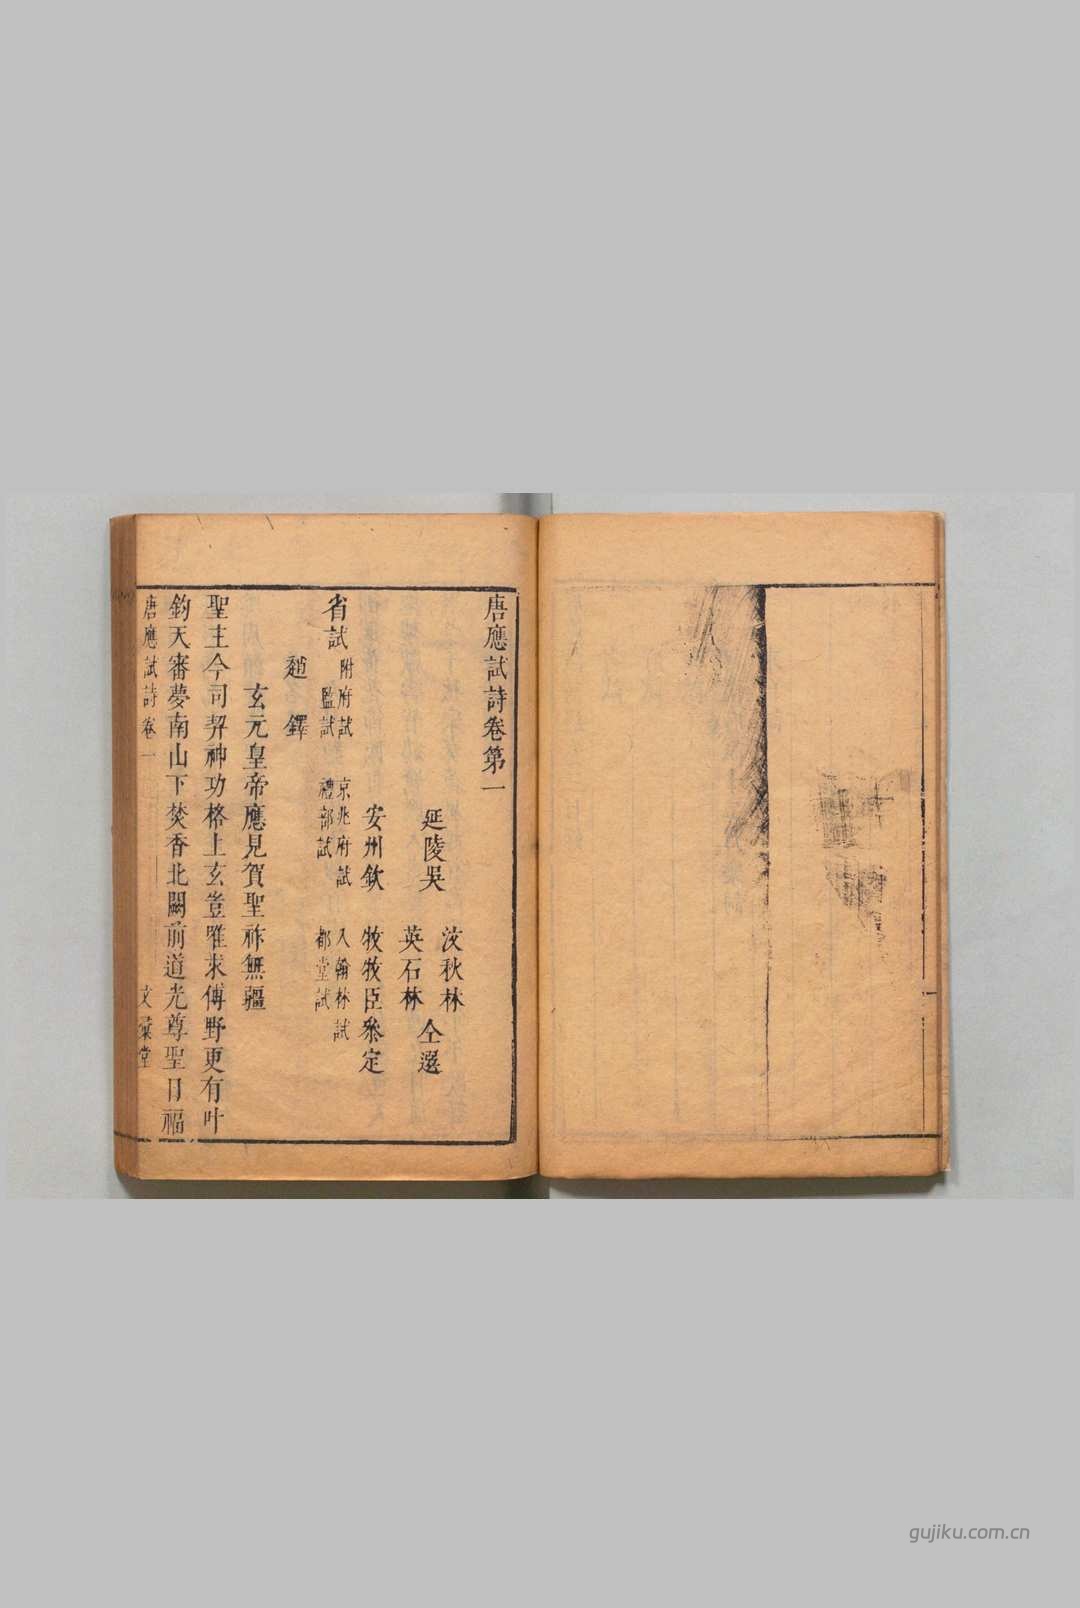 唐應試詩卷第一
汶秋林
延陵吳 仝選
英石林
安州欽 牧牧臣叅定
省試 附府試 京兆府試 入翰林試
監試 禮部試 都堂試
趙 鐸
玄元皇帝應見賀聖祚無疆
聖主今司契神功格上玄豈唯求傅野更有叶
鈞天審夢南山下焚香北闕前道光尊聖日福
唐應試詩 卷一 文彙堂
gujiku.com.cn